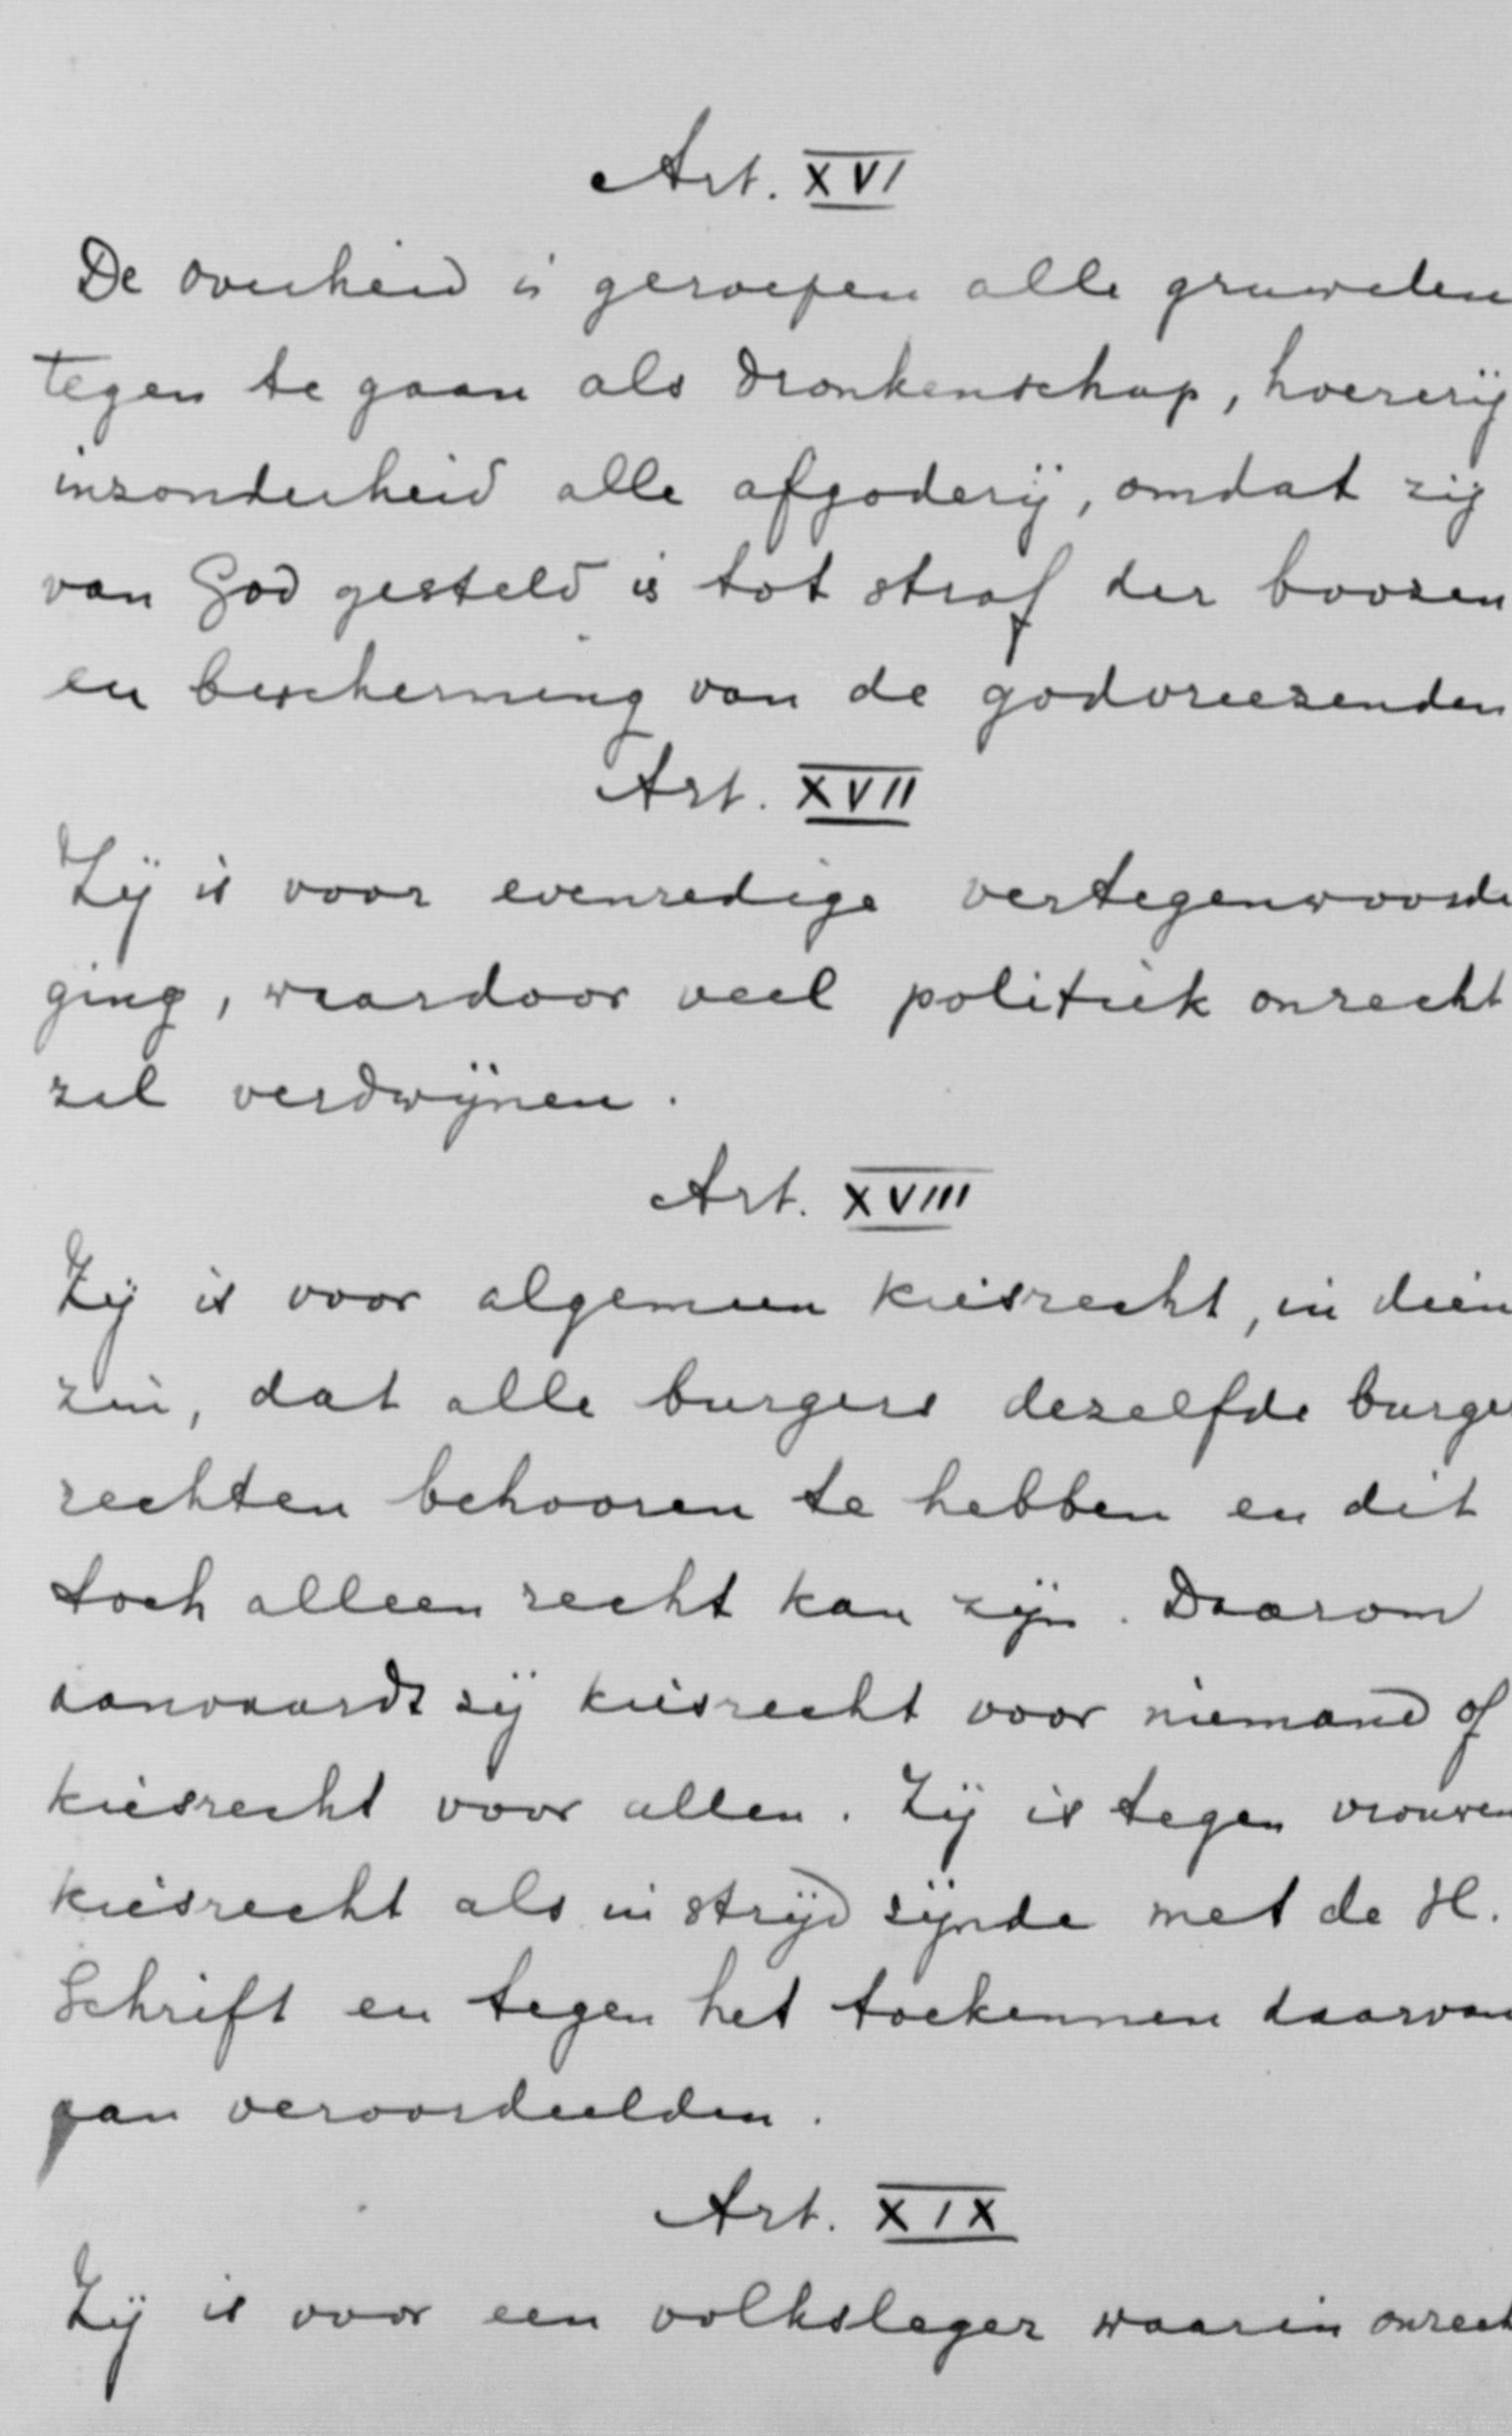 Art. XVI
De overheid is geroepen alle gruwelen
tegen te gaan als dronkenschap, hoererij
inzonderheid alle afgoderij, omdat zij
van God gesteld is tot straf der boozen
en bescherming van de godvreezenden
Art. XVII
Zij is voor evenredige vertegenwoordi
ging, waardoor veel politiek onrecht
zal verdwijnen.
Art. XVIII
Zij is voor algemeen kiesrecht, in dien
zin, dat alle burgers dezelfde burger
rechten behooren te hebben en dit
toch alleen recht kan zijn. Daarom
aanvaardt zij kiesrecht voor niemand of
kiesrecht voor allen. Zij is tegen vrouwen
kiesrecht als in strijd zijnde met de H.
Schrift en tegen het toekennen daarvan
aan veroordeelden.
Art. XIX
Zij is voor een volksleger waarin onrech